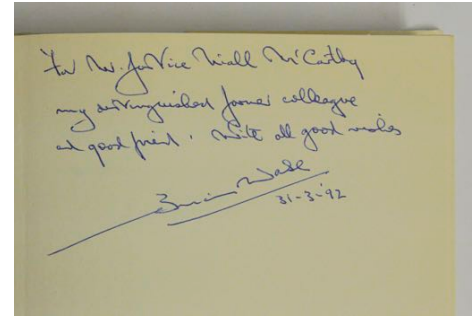 For Mr. Justice Niall McCarthy
my distinguished former colleague
and good friend. With all good wishes
Brian Walsh
31-3-'92